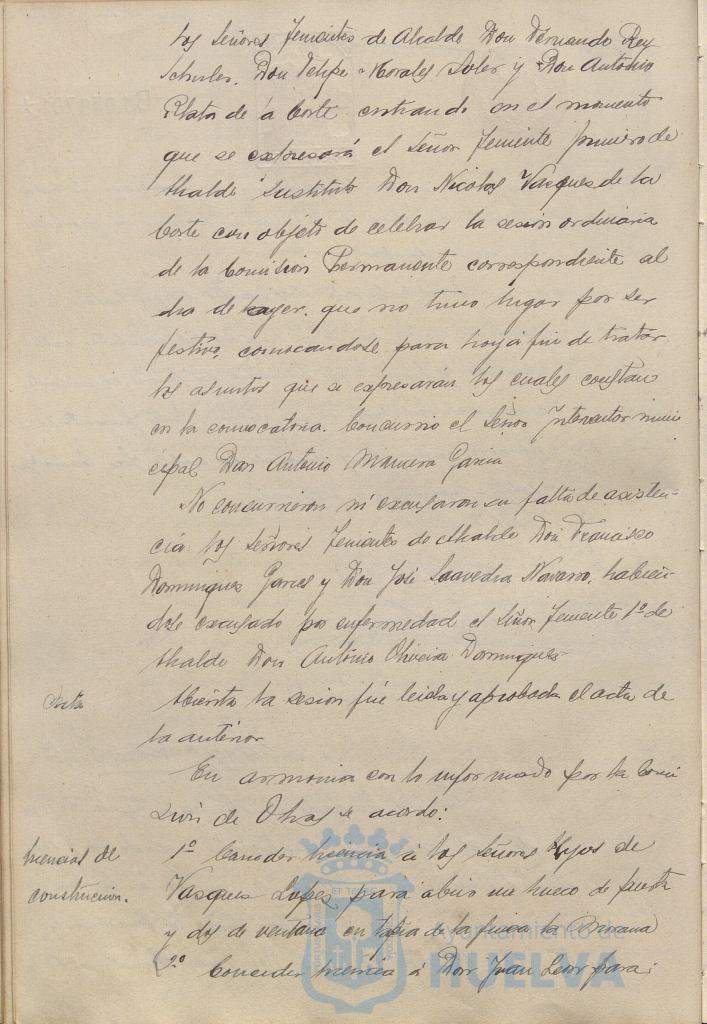 los Señores Tenientes de Alcalde Don Fernando Rey
Don Felipe Morales Soler y Don Antonio
Plata de la Corte entrando en el momento
que se expresará el Señor Teniente primero de
Alcalde Sustituto Don Nicolas Vasques de la
Corte con objeto de celebrar la sesion ordinaria
de la Comision Permanente correspondiente al
dia de hayer, que no tuvo lugar por ser
festivo, convocandose para hoy á fin de tratar
los asuntos que se expresarán los cuales constan
en la convocatoria. Concurrio el Señor Interventor muni
cipal Don Antonio Garcia
No concurrieron ni excusaron su falta de asisten-
cia los Señores Tenientes de Alcalde Don Francisco
Dominguez Garces y Don José Saavedra Navarro, habien-
dose excusado por enfermedad el Señor Teniente 1º de
Alcalde Don Antonio Oliveira Dominguez
Acta
Abierta la sesion fué leida y aprobada el acta de
la anterior
En armonia con lo informado por la Comi
sion de Obras se acordo:
licencias de
construccion.
1º Conceder licencia á los Señores Hijos de
Vasques Lopez para abrir un hueco de puerta
y dos de ventana en de la finca la
2º Conceder licencia á Don Juan Leon para
Ayuntamiento de
HUELVA